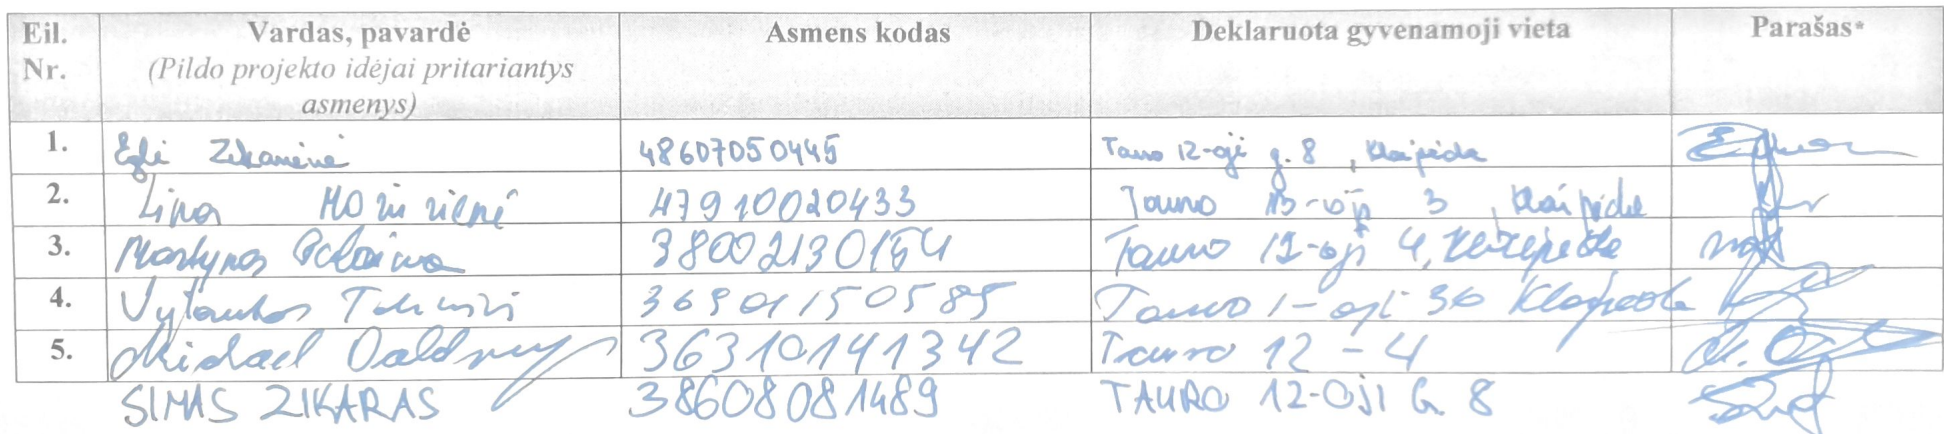 Eil. Nr.
Vardas, pavardė
(Pildo projekto idėjai pritariantys asmenys)
Asmens kodas
Deklaruota gyvenamoji vieta
Parašas*
1. Eglė Zikarienė 48607050445 Tauro 12-oji g. 8, Klaipėda
2. Lina 47910020433 Tauro 3, Klaipėda
3. Martynas 38002130164 Tauro 12-oji 4, Klaipėda
4. Vytautas Tauro 1-oji 36 Klaipėda
5. Michael 36310141342 Tauro 12-4
SIMAS ZIKARAS 38608081489 TAURO 12-OJI G. 8